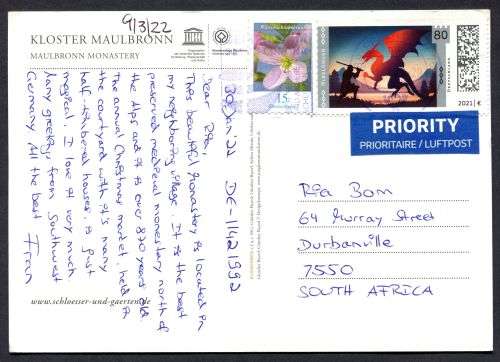 9/3/22
KLOSTER MAULBRONN
MAULBRONN MONASTERY
30 Jan 22 DE-11421992
Dear Ria,
This beautiful Monastery is located in
my neighboring village. It is the best
preserved medieval monastery north of
the Alps and it is over 870 years old.
The annual Christmas market held in
the courtyard with it's many
half-timbered houses is just
magical. I love it very much
Many greetings from Southwest
Germany All the best
www.schloesser-und-gaerten.de
15
80
2021 | €
PRIORITY
PRIORITAIRE / LUFTPOST
Ria Bom
64 Murray Street
Durbanville
7550
SOUTH AFRICA